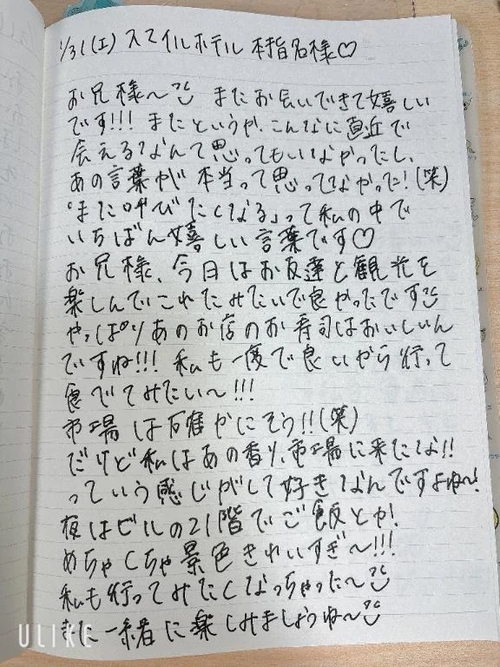 1/31(土) スマイルホテル 本指名様♡
お兄様〜 またお会いできて嬉しい
です!!! またというか、こんなに直近で
会えるなんて思ってもいなかったし、
あの言葉が本当って思ってなかった!(笑)
「また呼びたくなる」って私の中で
いちばん嬉しい言葉です♡
お兄様、今日はお友達と観光を
楽しんでこれたみたいで良かったです
やっぱりあのお店のお寿司はおいしいん
ですね!!! 私も一度で良いから行って
食べてみたい〜!!!
市場は確かにそう!!(笑)
だけど私はあの香り、市場に来たな!!
っていう感じがして好きなんですよね〜!
夜はビルの21階でご飯とか!
めちゃくちゃ景色きれいすぎ〜!!!
私も行ってみたくなっちゃった〜
また一緒に楽しみましょうね〜
ULIKE